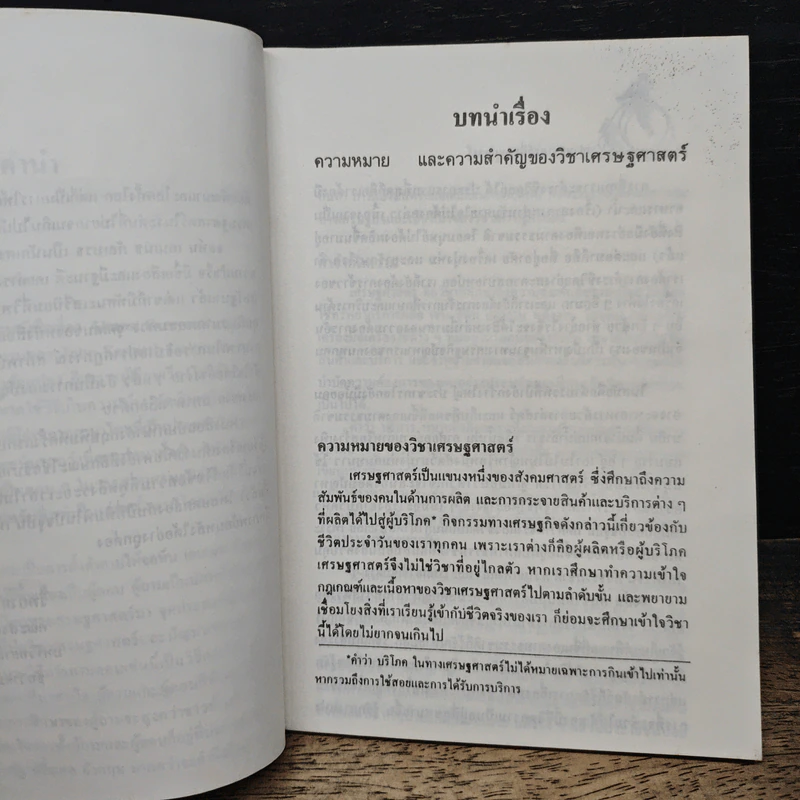 บทนำเรื่อง
ความหมาย และความสำคัญของวิชาเศรษฐศาสตร์
ความหมายของวิชาเศรษฐศาสตร์
เศรษฐศาสตร์เป็นแขนงหนึ่งของสังคมศาสตร์ ซึ่งศึกษาถึงความ
สัมพันธ์ของคนในด้านการผลิต และการกระจายสินค้าและบริการต่าง ๆ
ที่ผลิตได้ไปสู่ผู้บริโภค* กิจกรรมทางเศรษฐกิจดังกล่าวนี้เกี่ยวข้องกับ
ชีวิตประจำวันของเราทุกคน เพราะเราต่างก็คือผู้ผลิตหรือผู้บริโภค
เศรษฐศาสตร์จึงไม่ใช่วิชาที่อยู่ไกลตัว หากเราศึกษาทำความเข้าใจ
กฎเกณฑ์และเนื้อหาของวิชาเศรษฐศาสตร์ไปตามลำดับขั้น และพยายาม
เชื่อมโยงสิ่งที่เราเรียนรู้เข้ากับชีวิตจริงของเรา ก็ย่อมจะศึกษาเข้าใจวิชา
นี้ได้โดยไม่ยากจนเกินไป
*คำว่า บริโภค ในทางเศรษฐศาสตร์ไม่ได้หมายเฉพาะการกินเข้าไปเท่านั้น
หากรวมถึงการใช้สอยและการได้รับการบริการ